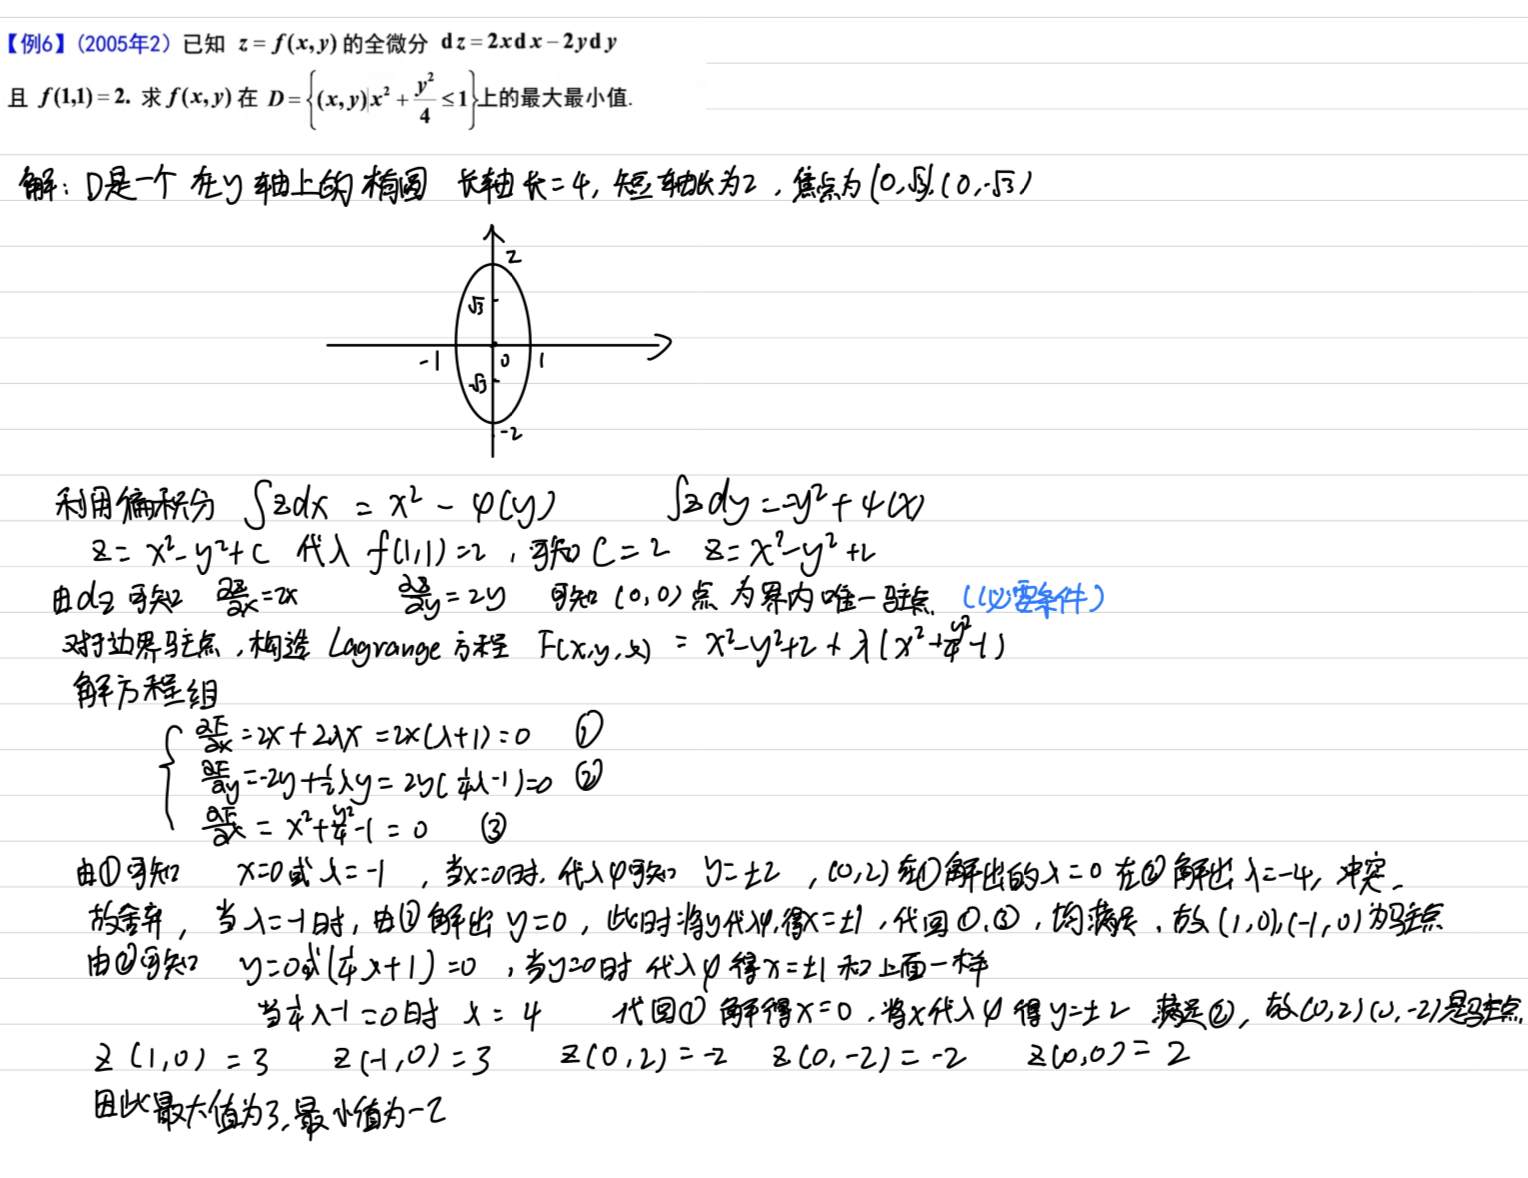 【例6】(2005年2) 已知 z = f(x,y) 的全微分 dz = 2xdx − 2ydy
且 f(1,1) = 2. 求 f(x,y) 在 D = {(x,y)|x² + y²/4 ≤ 1} 上的最大最小值.
解: D是一个在y轴上的椭圆 长轴长=4, 短轴长为2, 焦点为(0,√3),(0,-√3)
2
√3
-1 0 1
-√3
-2
利用偏积分 ∫zdx = x² - φ(y) ∫zdy = -y² + ψ(x)
z = x²-y²+C 代入 f(1,1)=2, 可知 C=2 z=x²-y²+2
由dz可知 ∂z/∂x=2x ∂z/∂y=2y 可知 (0,0)点为界内唯一驻点 (必要条件)
对于边界驻点, 构造 Lagrange 方程 F(x,y,λ) = x²-y²+2+λ(x²+y²/4-1)
解方程组
∂F/∂x = 2x+2λx = 2x(λ+1)=0 ①
∂F/∂y = -2y+1/2λy = 2y(1/4λ-1)=0 ②
∂F/∂λ = x²+y²/4-1=0 ③
由①可知 x=0或λ=-1, 当x=0时, 代入φ可知 y=±2, (0,2)在①解出的λ=0在②解出λ=-4, 冲突.
故舍弃, 当λ=-1时, 由②解出y=0, 此时将y代入φ,得x=±1, 代回①,③, 均满足, 故(1,0),(-1,0)为驻点
由②可知 y=0或(1/4λ+1)=0, 当y=0时 代入φ得x=±1和上面一样
当1/4λ-1=0时 λ=4 代回①解得x=0, 将x代入φ得y=±2 满足②, 故(0,2)(0,-2)是驻点
z(1,0)=3 z(-1,0)=3 z(0,2)=-2 z(0,-2)=-2 z(0,0)=2
因此最大值为3,最小值为-2